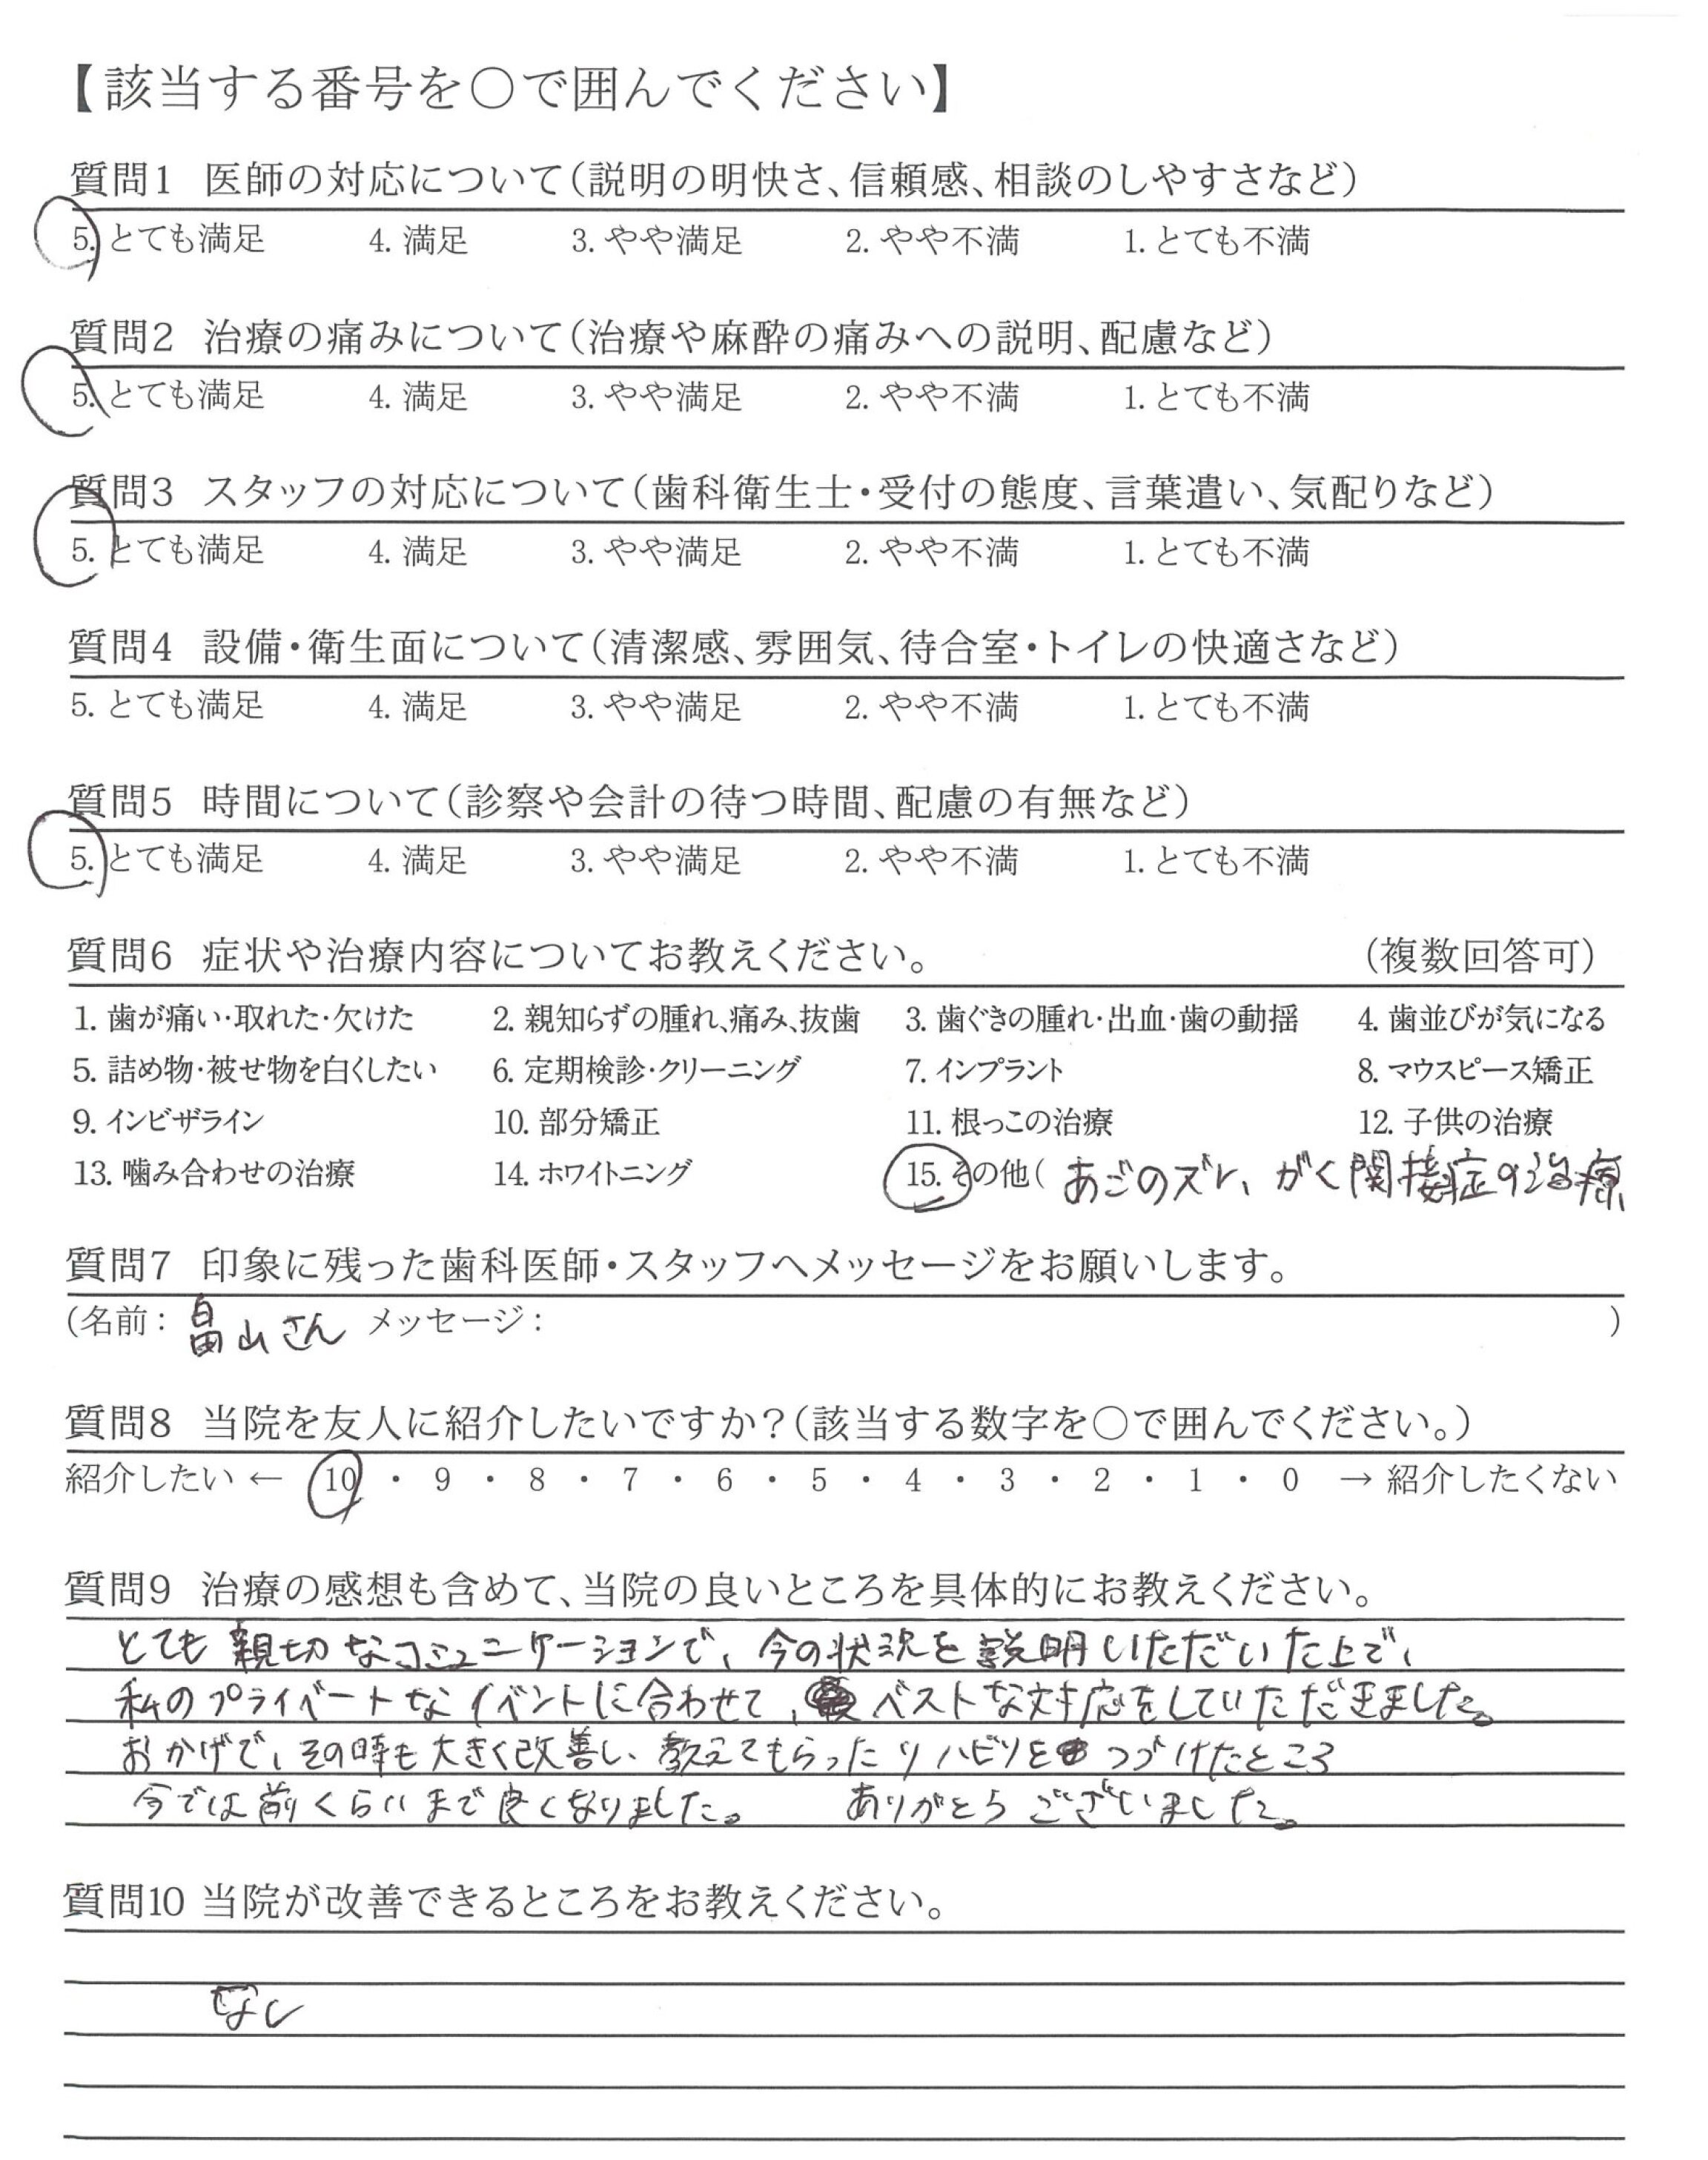 【該当する番号を〇で囲んでください】
質問1 医師の対応について(説明の明快さ、信頼感、相談のしやすさなど)
5. とても満足 4. 満足 3. やや満足 2. やや不満 1. とても不満
質問2 治療の痛みについて(治療や麻酔の痛みへの説明、配慮など)
5. とても満足 4. 満足 3. やや満足 2. やや不満 1. とても不満
質問3 スタッフの対応について(歯科衛生士・受付の態度、言葉遣い、気配りなど)
5. とても満足 4. 満足 3. やや満足 2. やや不満 1. とても不満
質問4 設備・衛生面について(清潔感、雰囲気、待合室・トイレの快適さなど)
5. とても満足 4. 満足 3. やや満足 2. やや不満 1. とても不満
質問5 時間について(診察や会計の待つ時間、配慮の有無など)
5. とても満足 4. 満足 3. やや満足 2. やや不満 1. とても不満
質問6 症状や治療内容についてお教えください。 (複数回答可)
1. 歯が痛い・取れた・欠けた 2. 親知らずの腫れ、痛み、抜歯 3. 歯ぐきの腫れ・出血・歯の動揺 4. 歯並びが気になる
5. 詰め物・被せ物を白くしたい 6. 定期検診・クリーニング 7. インプラント 8. マウスピース矯正
9. インビザライン 10. 部分矯正 11. 根っこの治療 12. 子供の治療
13. 噛み合わせの治療 14. ホワイトニング 15. その他( あごのズレ、がく関接症の治療
質問7 印象に残った歯科医師・スタッフへメッセージをお願いします。
(名前: 畠山さん メッセージ: )
質問8 当院を友人に紹介したいですか?(該当する数字を〇で囲んでください。)
紹介したい ← 10 ・ 9 ・ 8 ・ 7 ・ 6 ・ 5 ・ 4 ・ 3 ・ 2 ・ 1 ・ 0 → 紹介したくない
質問9 治療の感想も含めて、当院の良いところを具体的にお教えください。
とても親切なコミュニケーションで、今の状況を説明いただいた上で、
私のプライベートなイベントに合わせて、ベストな対応をしていただきました。
おかげで、その時も大きく改善し、教えてもらったリハビリをつづけたところ
今では前くらいまで良くなりました。 ありがとうございました。
質問10 当院が改善できるところをお教えください。
なし